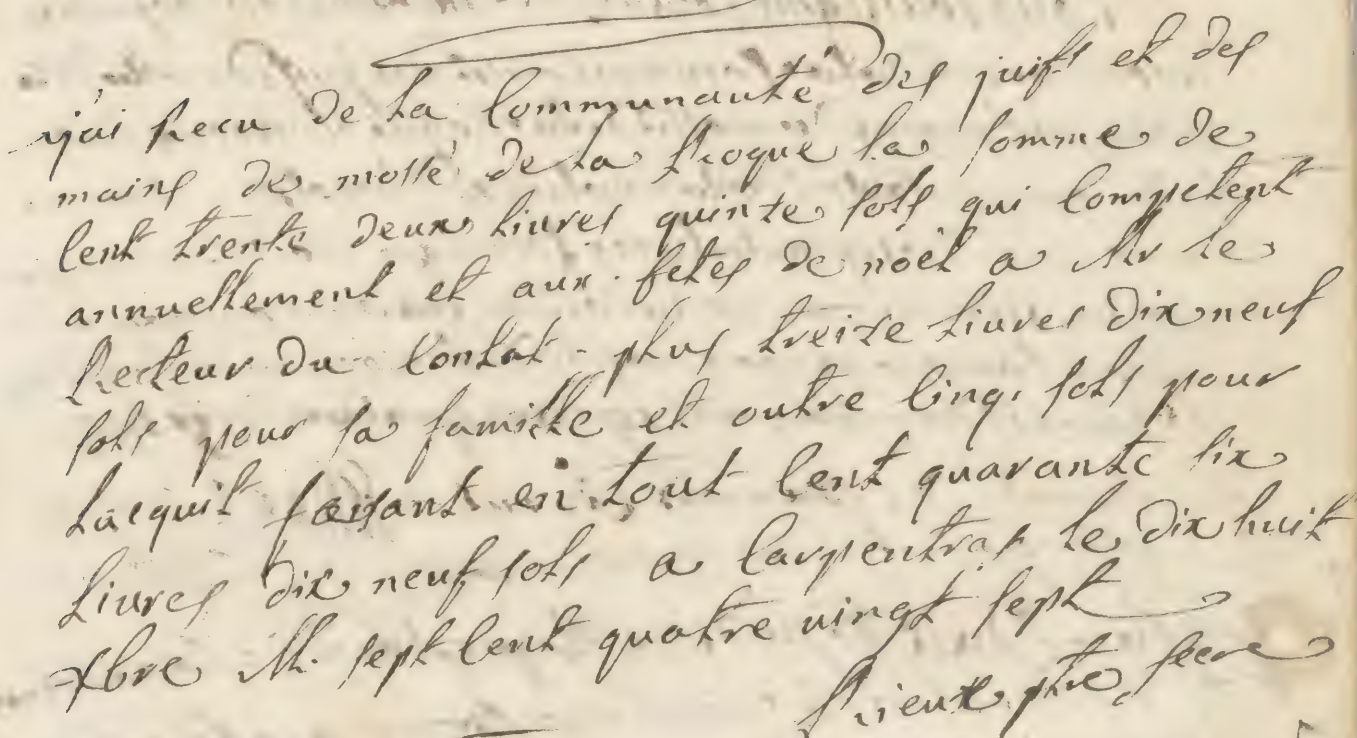 j'ai Recu de la Communauté des juifs et des
mains de mossé de la Roque la somme de
Cent trente deux Livres quinze sols qui Competent
annuellement et aux fetes de noël a Mr le
Recteur du Contat plus treize Livres dix neuf
sols pour sa famille et outre Cinq sols pour
Lacquit faisant en tout Cent quarante six
Livres dix neuf sols a Carpentras le dix huit
Xbre M. sept Cent quatre vingt sept
ptre secre